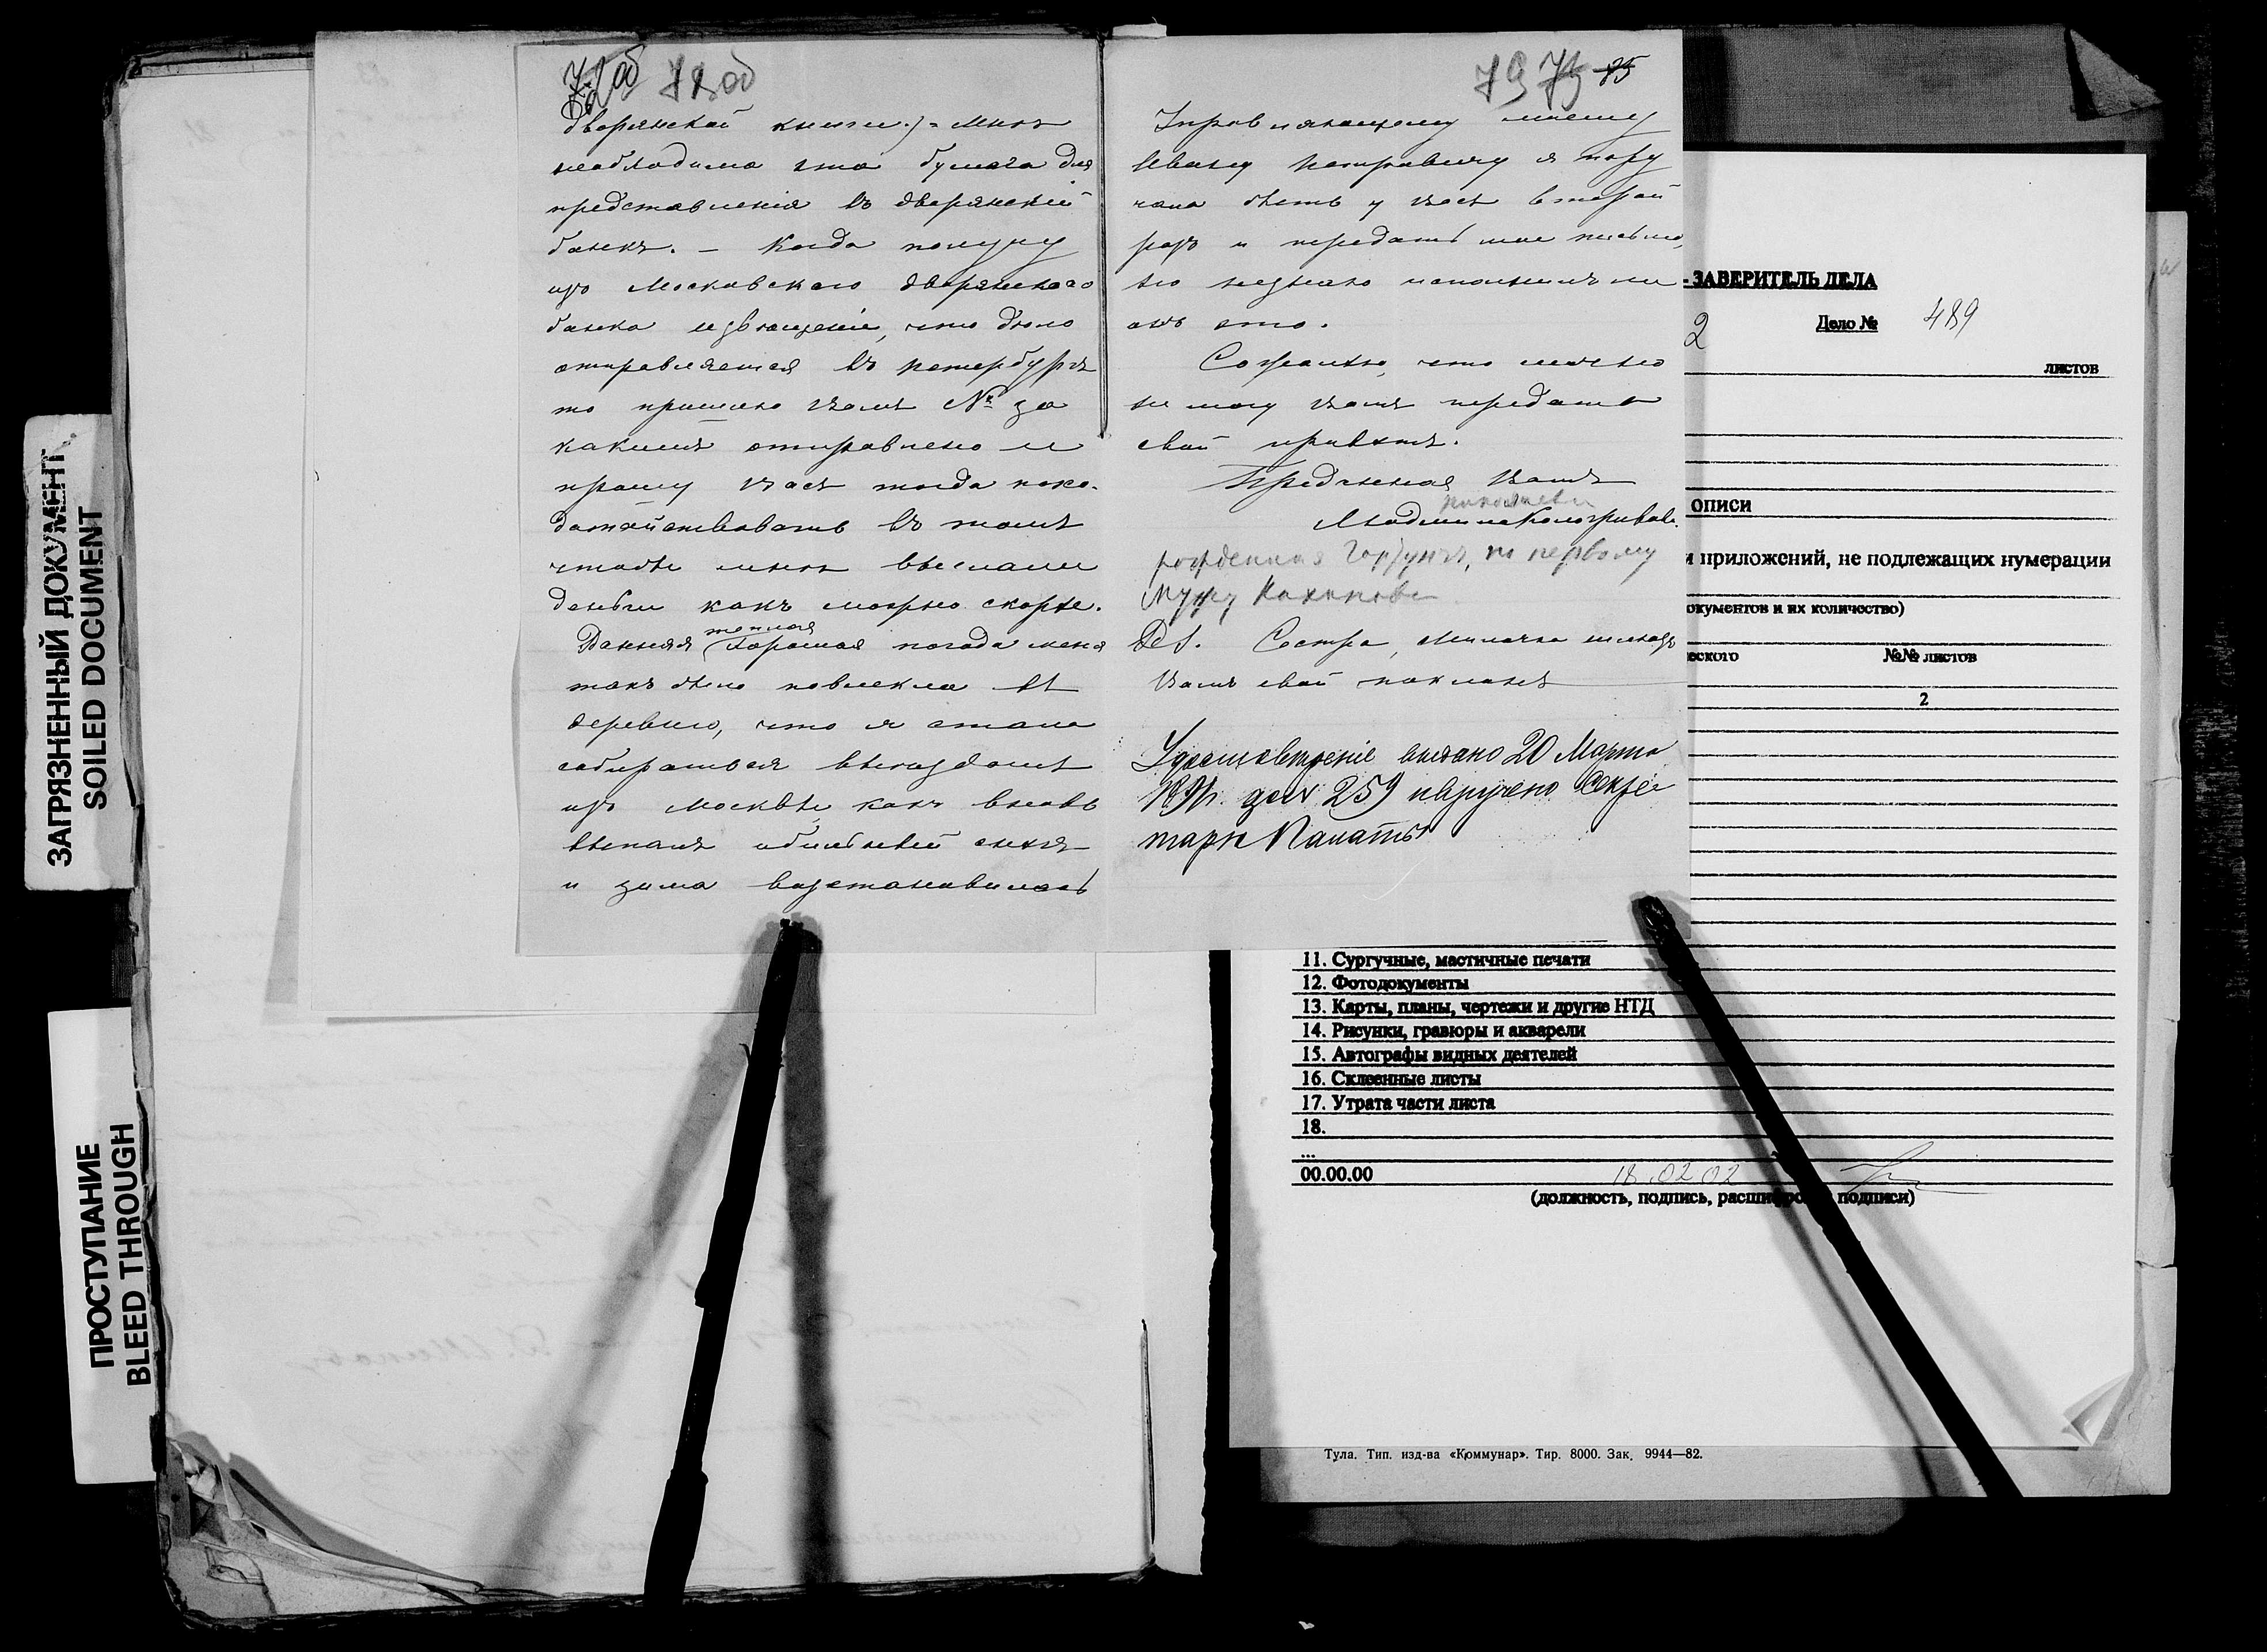 78об
дворянской книги.) - Мнѣ
необходима эта бумага для
представленія въ дворянскій
банкъ. - Когда получу
изъ Московскаго дворянскаго
банка извѣщеніе, что дѣло
отправляется въ Петербургъ
то пришлю Вамъ № за
какимъ отправлено и
прошу Васъ тогда похо-
датайствовать въ томъ
чтобы мнѣ выслали
деньги какъ можно скорѣе.
теплая
Ранняя хорошая погода меня
такъ было повлекла въ
деревню, что я стала
собираться выѣзжать
изъ Москвы, какъ вновь
выпалъ обильный снѣгъ
и зима возстановилась
79 75 85
Управляющему моему
Ивану Петровичу я пору
чала быть у Васъ второй
разъ и передать мое письмо,
но не знаю исполнилъ ли
онъ это.
Сожалѣю, что лично
не могу Вамъ передать
свой привѣтъ.
Преданная Вамъ
Людмила Кологривова
рожденная, по первому
мужу
P.S. Сестра, Милочка шлютъ
Вамъ свой поклонъ
Удостовѣреніе выдано 20 Марта
за № 259 и вручено Секре
тарю Палаты
-ЗАВЕРИТЕЛЬ ДЕЛА
2 Дело № 489
листов
ОПИСИ
и приложений, не подлежащих нумерации
окументов и их количество)
еского №№ листов
2
11. Сургучные, мастичные печати
12. Фотодокументы
13. Карты, планы, чертежи и другие НТД
14. Рисунки, гравюры и акварели
15. Автографы видных деятелей
16. Склеенные листы
17. Утрата части листа
18.
...
00.00.00 18.02.02
(должность, подпись, расшифро подписи)
Тула. Тип. изд-ва «Коммунар». Тир. 8000. Зак. 9944—82.
ЗАГРЯЗНЕННЫЙ ДОКУМЕНТ
SOILED DOCUMENT
ПРОСТУПАНИЕ
BLEED THROUGH